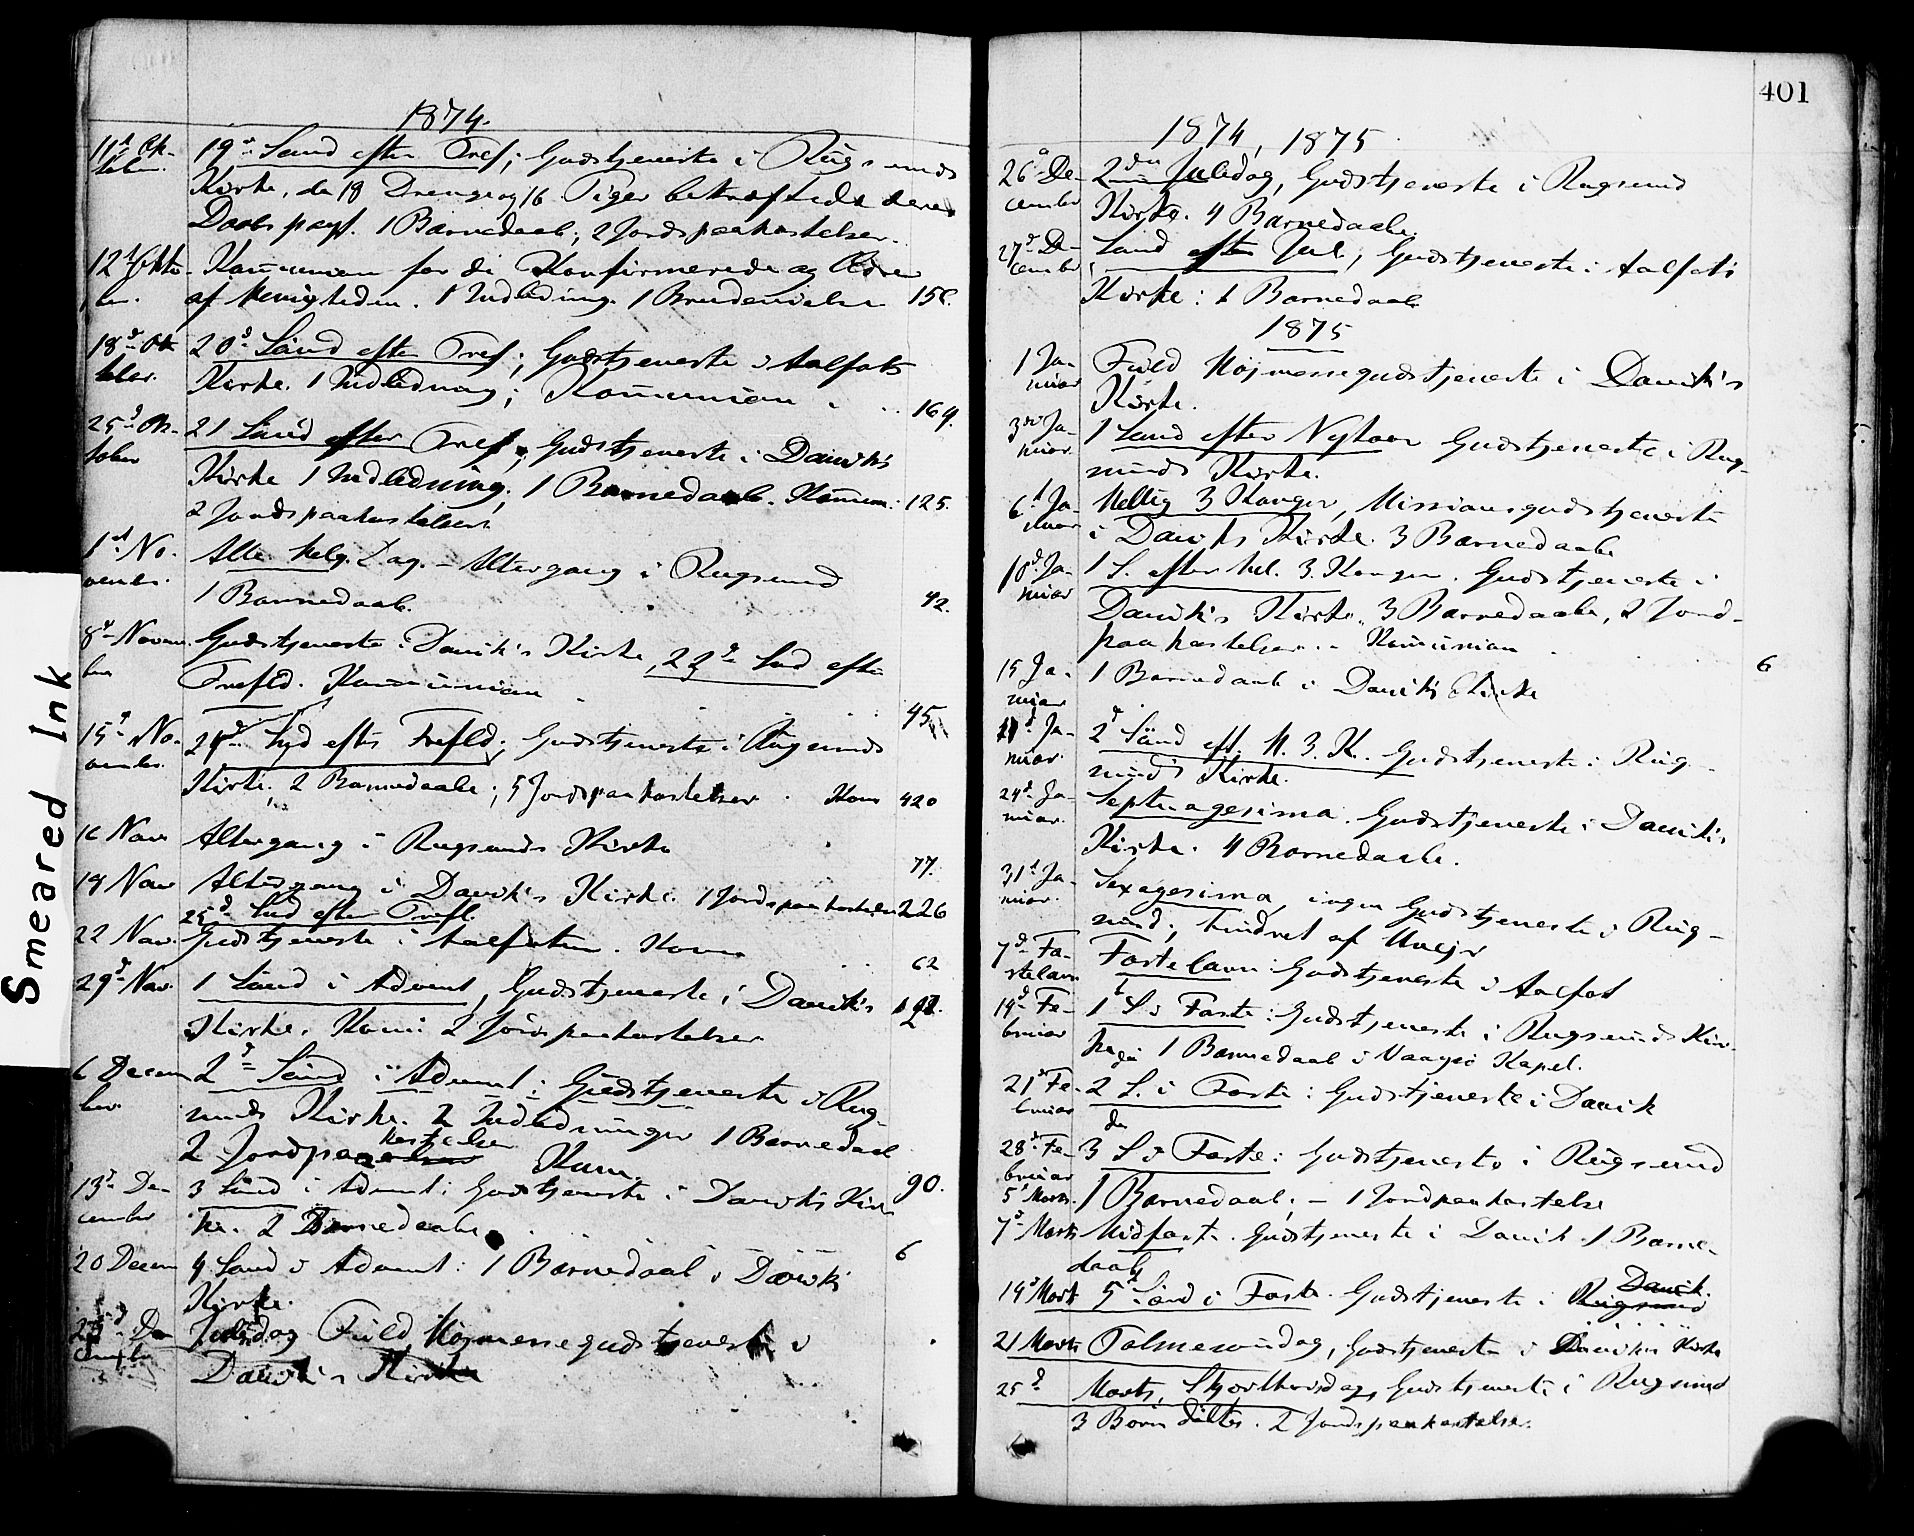 Smeared Ink
1874.
11t Ok- 19d Sønd efter Tref; Gudstjeneste i Rugsunds
tober. Kirke, da 18 Drenge og 16 Piger bekræftede deres
Daabspagt. 1 Barnedaab; 2 Jordspaakastelser.
12t Okto- Kommunion for de Konfirmerede og Ældre
ber. af Menigheden. 1 Indledning. 1 Brudevielse 156.
18d Ok 20d Sønd efter Tref; Gudstjeneste i Aalfots
tober. Kirke. 1 Indledning; Kommunion . . . 164.
25d Ok- 21 Sønd efter Tref; Gudstjeneste i Daviks
tober Kirke 1 Indledning; 1 Barnedaab. Kommun. 125.
2 Jordspaakastelser
1st No- Alle Helg. Dag. - Altergang i Rugsund
vember. 1 Barnedaab. 42.
8d Novem- Gudstjeneste i Davik's Kirke, 23d Snd efter
ber Trefld. Kommunion . . . 45
15d No- 24d Snd efter Trefld; Gudstjeneste i Rugsunds
vember. Kirke; 2 Barnedaabe; 5 Jordspaakastelser. Kom 420
16 Nov Altergang i Rugsunds Kirke 77.
18 Nov Altergang i Davik's Kirke. 1 Jordspaakastelse 226
25d Snd efter Trefl.
22 Nov. Gudstjeneste i Aalfoten. Kom. 62
29d Nov. 1 Sønd i Advent, Gudstjeneste i Davik's
Kirke. Kom: 2 Jordspaakastelser
6 Decem 2d Sønd i Advent: Gudstjeneste i Rug-
ber sunds Kirke. 2 Indledninger 1 Barnedaab
2 Jordpaakastelser Kom 90.
13d De- 3 Sønd i Advent: Gudstjeneste i Daviks Kir-
cember ke. 2 Barnedaabe.
20 Decem 4 Sønd i Advent: 1 Barnedaab i Daviks 6
Kirke.
25d De- Juledag Fuld Højmessegudstjeneste i
cember Davik's Kirke
401
1874, 1875
26d De- 2den Juledag, Gudstjeneste i Rugsund
cember Kirke. 4 Barnedaabe.
27d De- Sønd efter Jul, Gudstjeneste i Aalfots
cember Kirke: 1 Barnedaab
1875
1 Ja- Fuld Højmessegudstjeneste i Davik's
nuar Kirke.
3die Ja- 1 Sønd efter Nytaar Gudstjeneste i Rug-
nuar. sunds Kirke.
6t Ja- Hellig 3 Konger, Missionsgudstjeneste
nuar i Daviks Kirke. 3 Barnedaabe
10d Ja- 1 S. efter hel. 3. Konger. Gudstjeneste i
nuar Davik's Kirke. 3 Barnedaabe, 2 Jord-
paakastelser. - Kommunion . . 6
15 Ja- 1 Barnedaab i Daviks Kirke
nuar
Ja- 2d Sønd eft. H. 3. K. Gudstjeneste i Rug-
nuar. sunds Kirke.
24d Ja- Septuagesima. Gudstjeneste i Davik's
nuar. Kirke. 4 Barnedaabe.
31t Ja- Sexagesima, ingen Gudstjeneste i Rug-
nuar. sund; hindret af Uvejr
7d Fa- Fastelavn: Gudstjeneste i Aalfot
stelavn
14d Fe- 1t S i Faste: Gudstjeneste i Rugsunds Kir-
bruar ke 1 Barnedaab i Vaagsø Kapel.
21d Fe- 2 S. i Faste: Gudstjeneste i Davik
bruar
28d Fe- 3die S i Faste: Gudstjeneste i Rugsund
bruar
5t Marts. 1 Barnedaab; - 1 Jordpaakastelse
7d Marts Midfaste. Gudstjeneste i Davik 1 Barne-
daab
14d Marts 5d Sønd i Faste. Gudstjeneste i Rugsund Davik.
21 Marts Palmesøndag, Gudstjeneste i Daviks Kirke
25d Marts, Skjærthorsdag, Gudstjeneste i Rugsund
3 Børn døbtes. 2 Jordspaakastelse.